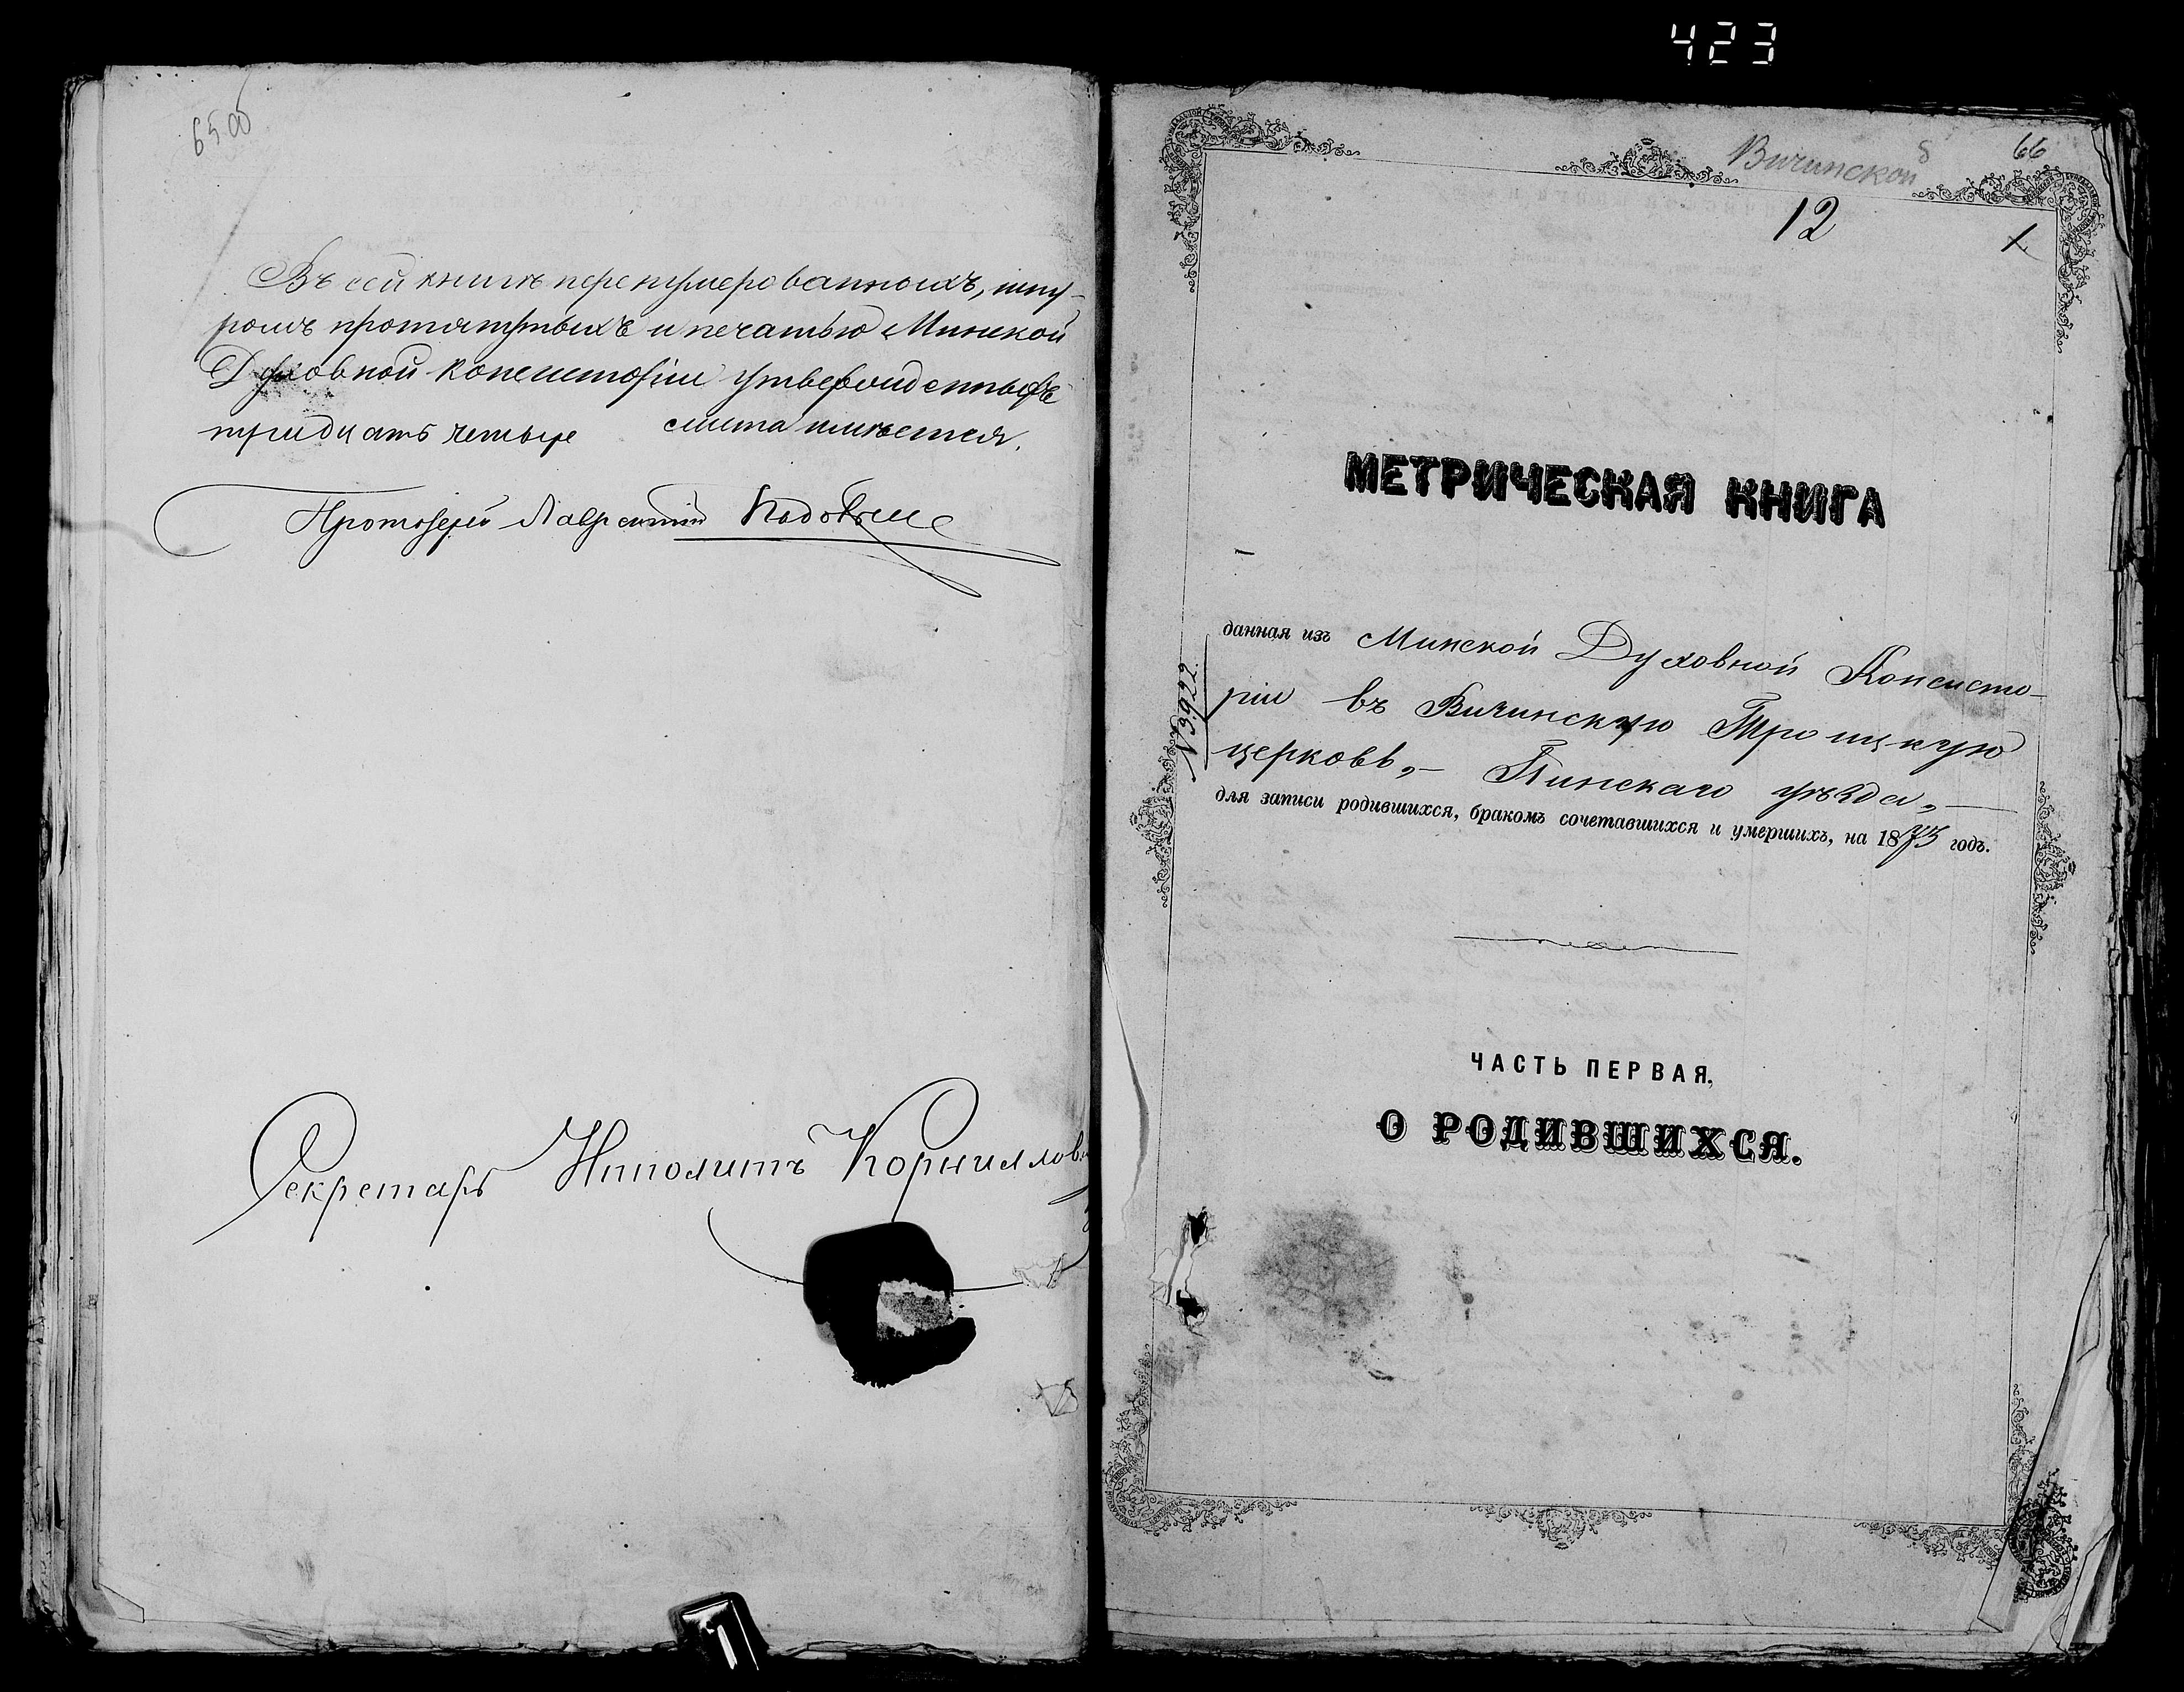 423
65 об
Въ сей книгѣ перенумерованныхъ, шну-
ромъ протянутыхъ и печатью Минской
Духовной Консисторіи утвержденныхъ
тридцать четыре листа имѣется.
Протоіерей Лаврентій
Секретарь Ипполитъ Корниллов
Вичинской
66
12
МЕТРИЧЕСКАЯ КНИГА
данная изъ Минской Духовной Консисто-
ріи въ Вичинскую Троицкую
церковь,- Пинскаго уѣзда,-
для записи родившихся, бракомъ сочетавшихся и умершихъ, на 1873 годъ.
№ 3922
ЧАСТЬ ПЕРВАЯ,
О РОДИВШИХСЯ.